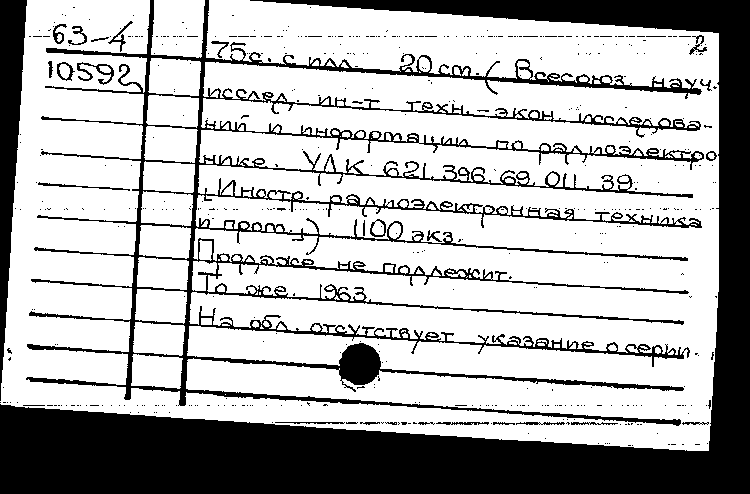 2
63-4
10592
75с. с илл. 20 см. (Всесоюз. науч.-
исслед. ин-т техн.-экон. исследова-
ний и информации по радиоэлектро-
нике. УДК 621.396.69.011.39.
[Иностр. радиоэлектронная техника
и пром.]). 1100 экз.
Продаже не подлежит.
То же. 1963.
На обл. отсутствует указание о серии.